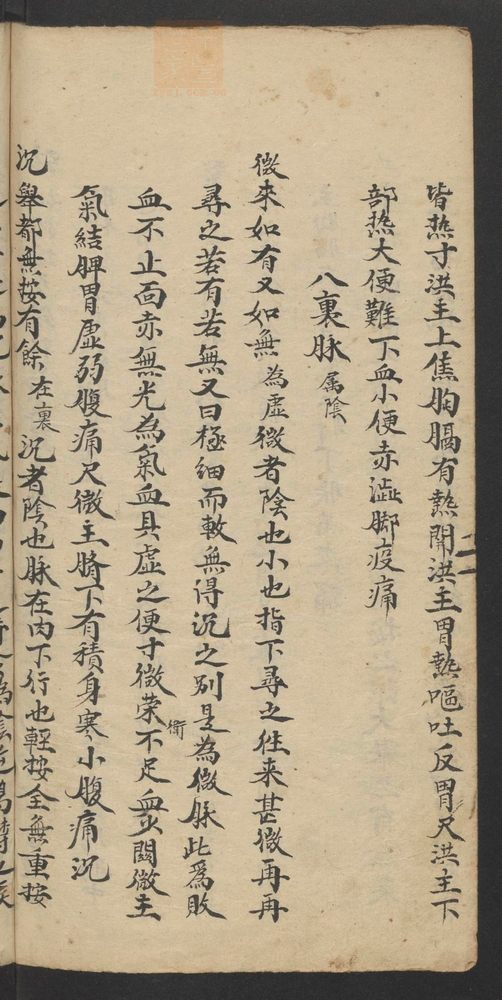 皆热寸洪主上焦胸膈有熱関洪主胃熱嘔吐反胃尺洪主下
部热大便難下血小便赤澁脚疫痛
八裏脉 属陰
微来如有又如無 為虚 微者陰也小也指下尋之往来甚微再再
尋之若有若無又曰極細而軟無得沉之别是為微脉此爲敗
血不止面赤無光為氣血具虚之便寸微荣衛不足血少関微主
氣結脾胃虚弱腹痛尺微主臍下有積身寒小腹痛沉
沉舉都無按有餘 在裏 沉者陰也脉在肉下行也輕按全無重按